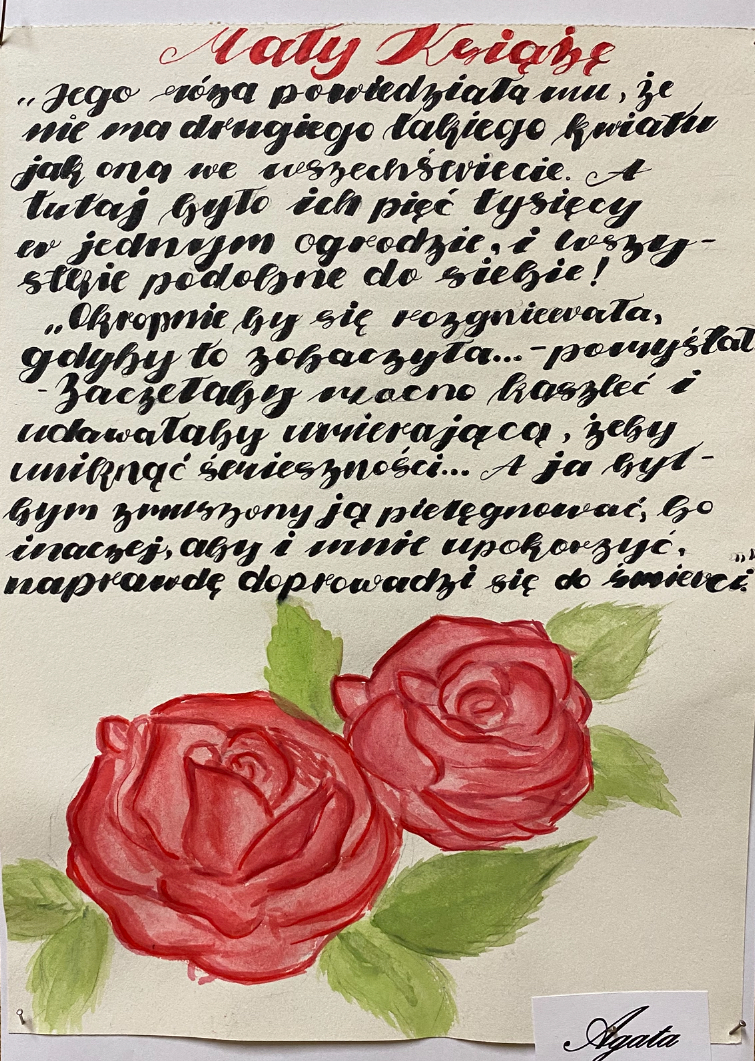 Mały Książę
„Jego róża powiedziała mu, że
nie ma drugiego takiego kwiatu
jak ona we wszechświecie. A
tutaj było ich pięć tysięcy
w jednym ogrodzie, i wszy-
stkie podobne do siebie!
„Okropnie by się rozgniewała,
gdyby to zobaczyła... - pomyślał
- Zaczęłaby mocno kaszleć i
udawałaby umierającą, żeby
uniknąć śmieszności... A ja był-
bym zmuszony ją pielęgnować, bo
inaczej, aby i mnie upokorzyć,
naprawdę doprowadzi się do śmierci."
Agata